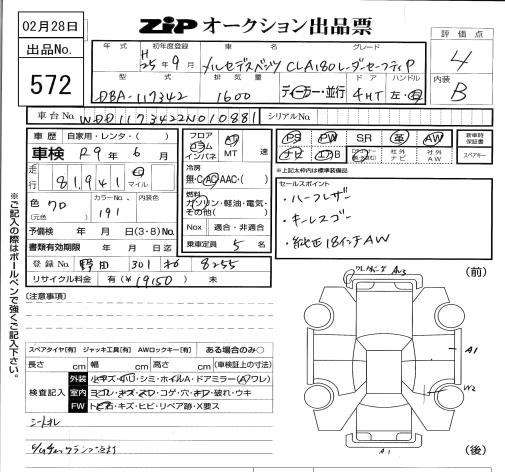 02月28日
ZIP オークション出品票
出品No.
572
年式 初年度登録 車名 グレード
H 25年9月 メルセデスベンツ CLA180レーダーセーフティP
型式 排気量 ドア ハンドル
DBA-117342 1600 ディーラー・並行 4HT 左・右
評価点
4
内装
B
車台No. WDD1173422N010881 シリアルNo.
車歴 自家用・レンタ・( )
車検 R9年6月
走行 81,941 km マイル
色 クロ (元色) カラーNo. 191 内装色
予備検 年 月 日(3・8)No.
書類有効期限 年 月 日迄
登録No. 野田 301 8255
リサイクル料金 有(¥19150) 未
フロア コラム インパネ AT MT 速
冷房 無・C・AC・AAC・( )
燃料 ガソリン・軽油・電気・その他( )
Nox 適合・非適合
乗車定員 5 名
PS PW SR 革 AW
ナビ エアB 社外ナビ 社外AW
新車時保証書
スペアキー
※上記太枠内は標準装備品
セールスポイント
・ハーフレザー
・キーレスゴー
・純正18インチAW
[注意事項]
スペアタイヤ[有] ジャッキ工具[有] AWロックキー[有] ある場合のみ○
長さ cm 幅 cm 高さ cm (車検証上の寸法)
検査記入 外装 小キズ・小U・シミ・ホイルA・ドアミラー(A ワレ)
室内 ヨゴレ・キズ・スレ・コゲ・穴・キレ・破れ・ウキ
FW トビ石・キズ・ヒビ・リペア跡・X要ス
シートスレ
(前)
A1
W2
A1
(後)
※ご記入の際はボールペンで強くご記入下さい。